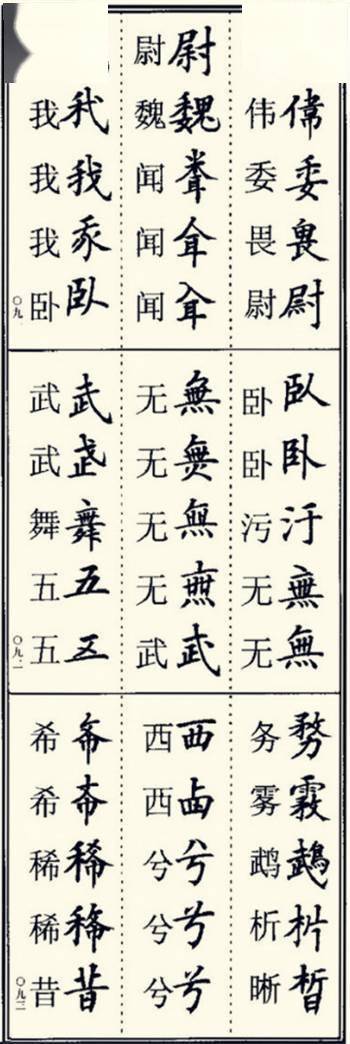 偉委畏尉
伟委畏尉
尉魏
尉魏闻闻闻
我
我我我卧
臥卧汙無無
卧卧污无无
無無無無武
无无无无武
武武舞五五
武武舞五五
〇九一
務霧鵡析晳
务雾鹉析晰
西卤兮兮兮
西西兮兮兮
希希稀稀昔
希希稀稀昔
〇九二